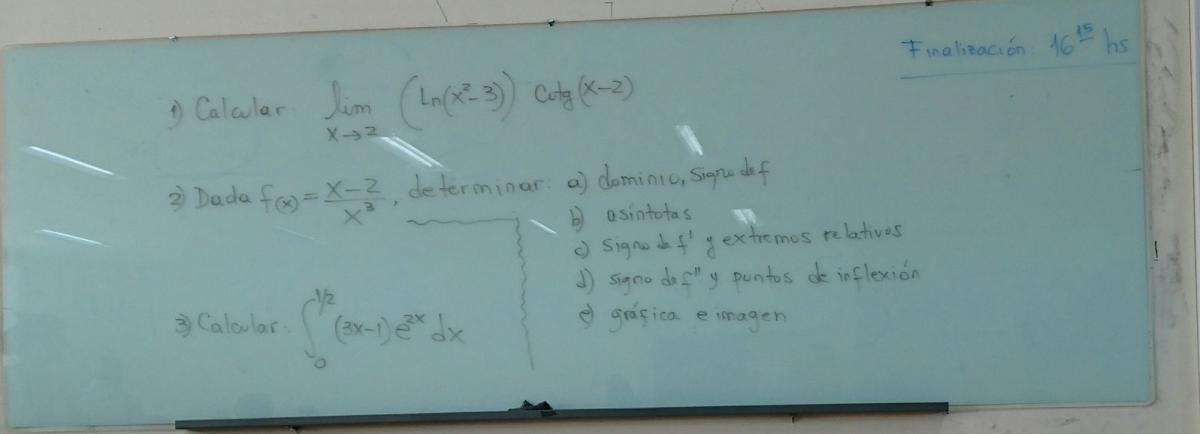 Finalización: 16 15 hs
1) Calcular: lim x→2 (Ln(x²-3)) Cotg(x-2)
2) Dada f(x) = x-2 / x³, determinar: a) dominio, signo de f
b) asíntotas
c) signo de f' y extremos relativos
d) signo de f'' y puntos de inflexión
e) gráfica e imagen
3) Calcular: ∫₀^1/2 (3x-1) e^2x dx